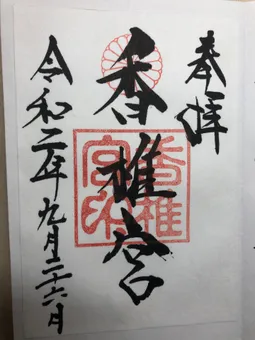 奉拝
香椎宮
香椎宮印
令和二年九月二十六月